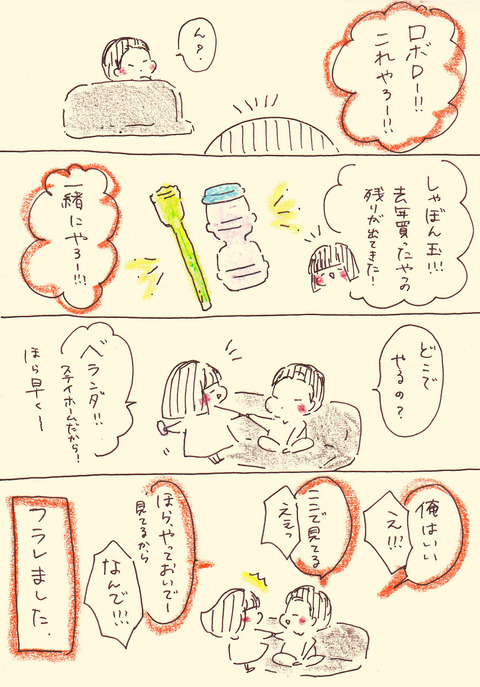 ロボロー!!
これやろー!!
ん?
しゃぼん玉!!!
去年買ったやつの
残りが出てきた!
一緒にやろー!!!
どこで
やるの?
ベランダ!!
ステイホームだから!
ほら早くー
俺はいい
え!!!
ここで見てる
えぇっ
ほら、やっておいでー
見てるから
なんで!!!
フラレました.